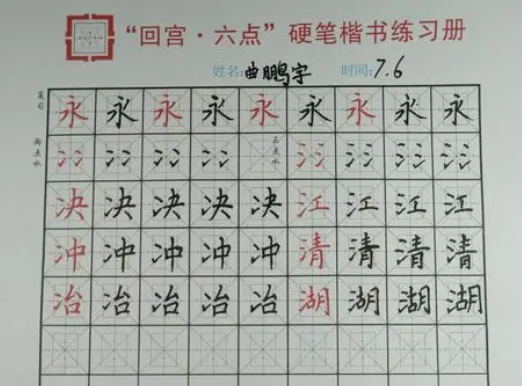 “回宫·六点”硬笔楷书练习册
姓名:曲鹏宇 时间:7.6
复习 永 永 永 永 永 永 永 永 永
两点水 冫 冫 冫 冫 三点水 氵 氵 氵 氵
决 决 决 决 决 江 江 江 江
冲 冲 冲 冲 冲 清 清 清 清
冶 冶 冶 冶 冶 湖 湖 湖 湖